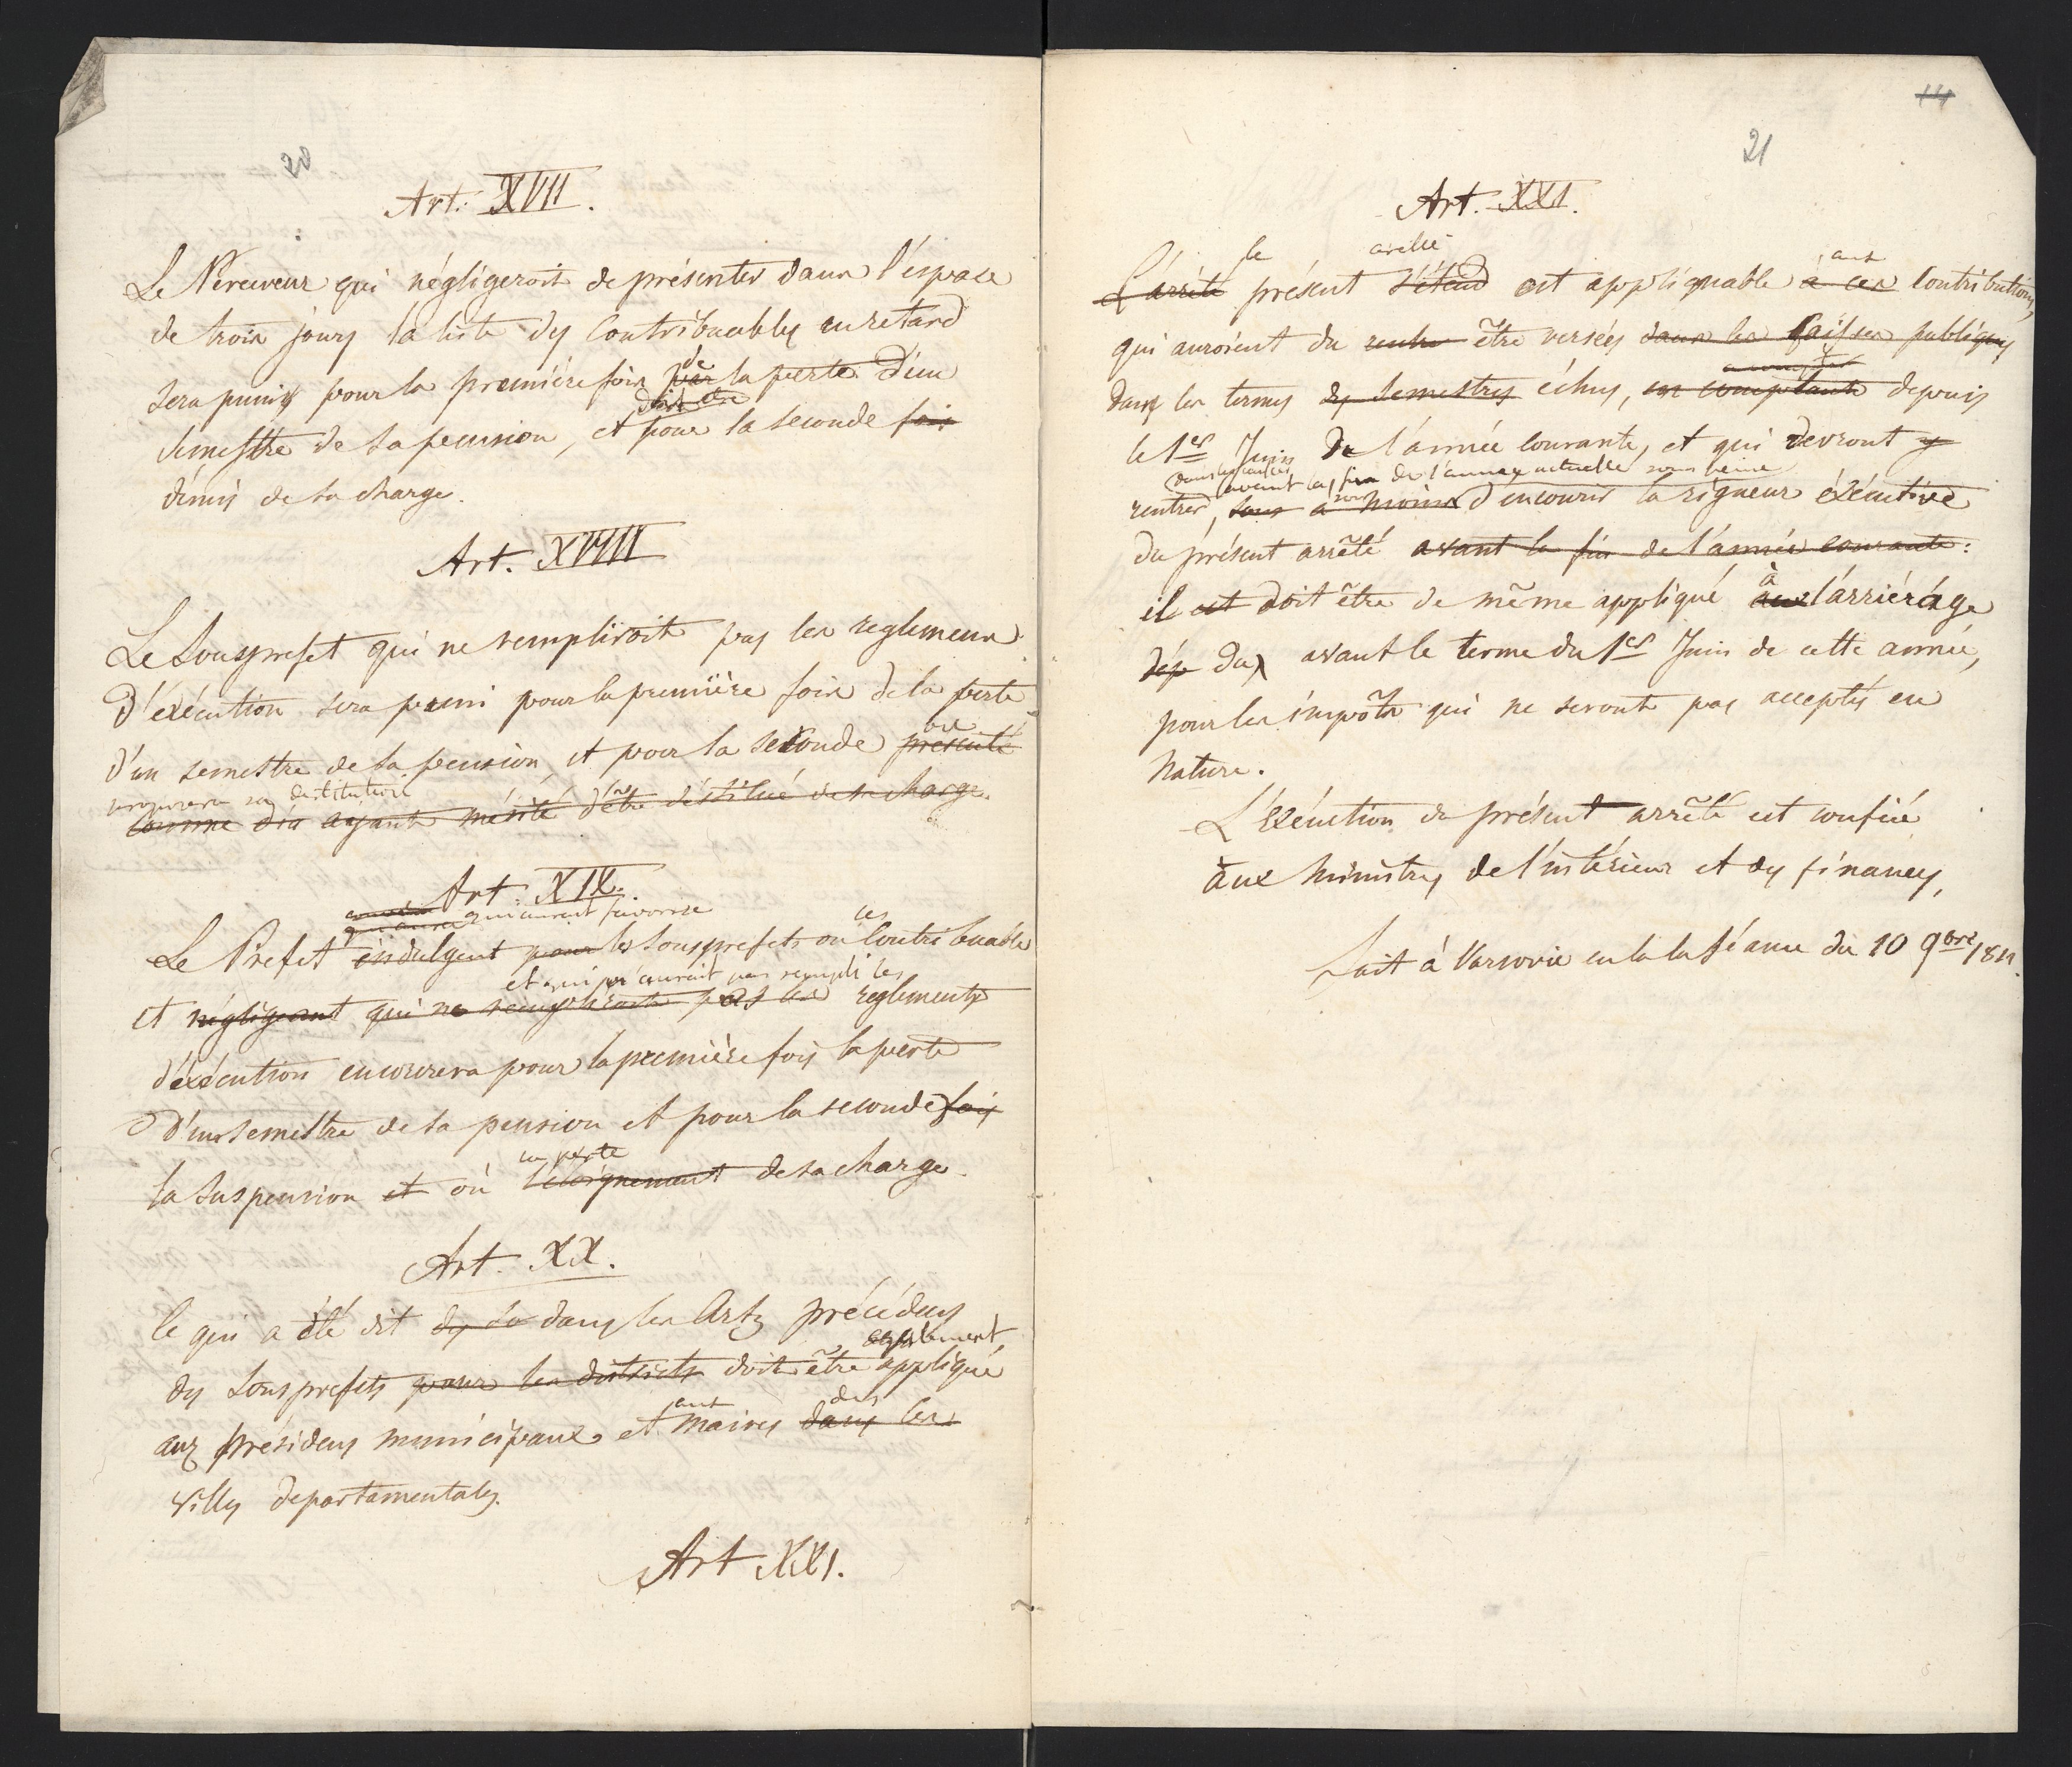 20
Art: XVII.
Le Perceveur qui négligeroit de présenter dans l'espace
de trois jours la liste des Contribuables en retard
de
sera puni pour la premiere fois par la perte d'un
doit être
semestre de sa pension, et pour la seconde fois
démis de sa charge.
Art. XVIII
Le Sousprefet qui ne rempliroit pas les reglemens
d'exécution sera puni pour la première fois de la perte
on
d'un semestre de sa pension, et pour la seconde présenté
proposera sa destitution
comme dia ayant mérité d'être déstitué de sa charge.
Art. XIX.
qui auroit favorisé ces
Le Prefet indulgent pour les Sousprefets ou Contribuables
et qui n'auroit pas rempli les
et négligeant qui ne rempliroit pas les reglements
d'éxécution encourera pour la première fois la perte
d'un semestre de sa pension et pour la seconde fois
la perte
la suspension et où l'éloignement de sa charge.
Art. XX.
Ce qui a été dit dans les Arts précédens
également
des Sousprefets pour les districts doit être appliqué
aux des
aux présidens municipaux et maires dans les
villes departementales.
Art XXI.
14
21
Art. XXI.
le arrêté aux
L'arrêté présent s'étend est appliquable à ces Contributions,
qui auroient du rentre être versées dans les Caisses publiques
a compter
dans les termes des Semestres échus, en comptant depuis
le 1er Juin de l'année courante, et qui devront y
dans les caisses avant la fin de l'année actuelle sous peine
rentrer, sous à moins d'encourir la rigueur éxécutive
du présent arrêté avant la fin de l'année courante:
à
il est doit être de même appliqué aux l'arriérage
dép du avant le terme du 1er Juin de cette année,
pour les impôts qui ne seront pas acceptés en
Nature.
L'éxécution du présent arrêté est confiée
aux ministres de l'intérieur et des finances,
Fait à Varsovie en la la Séance du 10 9bre 1811.